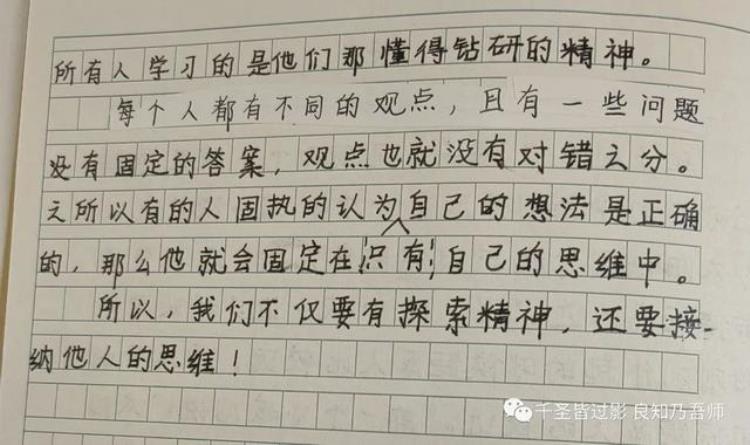 所有人学习的是他们那懂得钻研的精神。
每个人都有不同的观点，且有一些问题
没有固定的答案，观点也就没有对错之分。
之所以有的人固执的认为自己的想法是正确
的，那么他就会固定在只有自己的思维中。
所以，我们不仅要有探索精神，还要接
纳他人的思维！
千圣皆过影 良知乃吾师